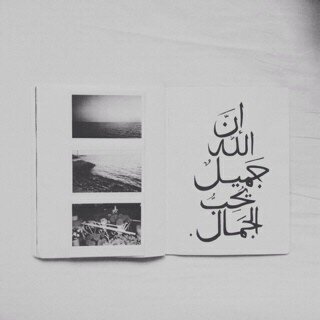 إنَّ
الله
جَميلٌ
يُحبُّ
الجَمال.